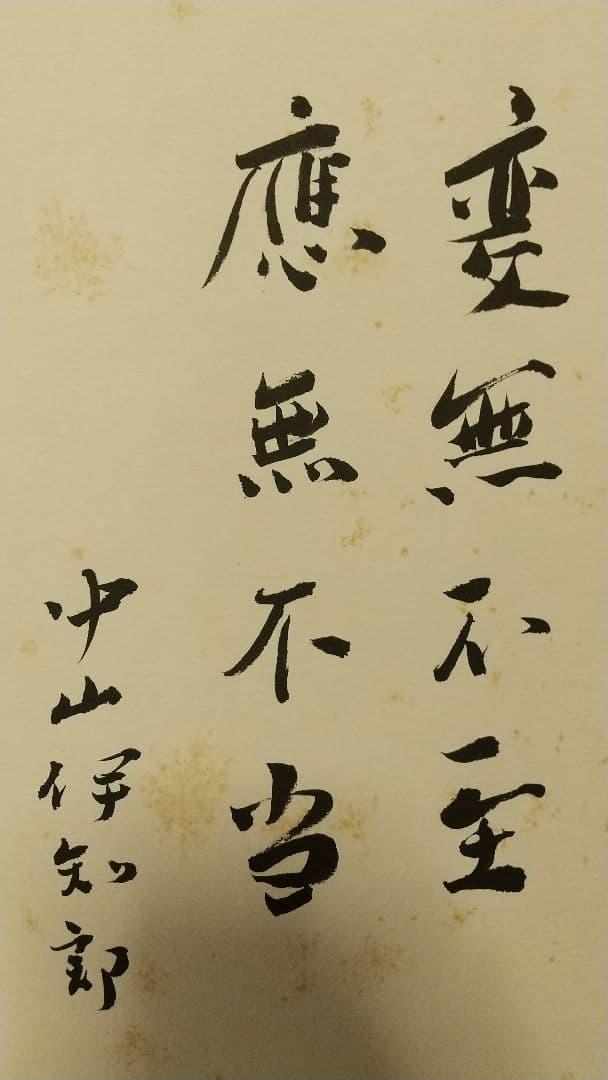 変無不至
應無不当
中山伊知郎